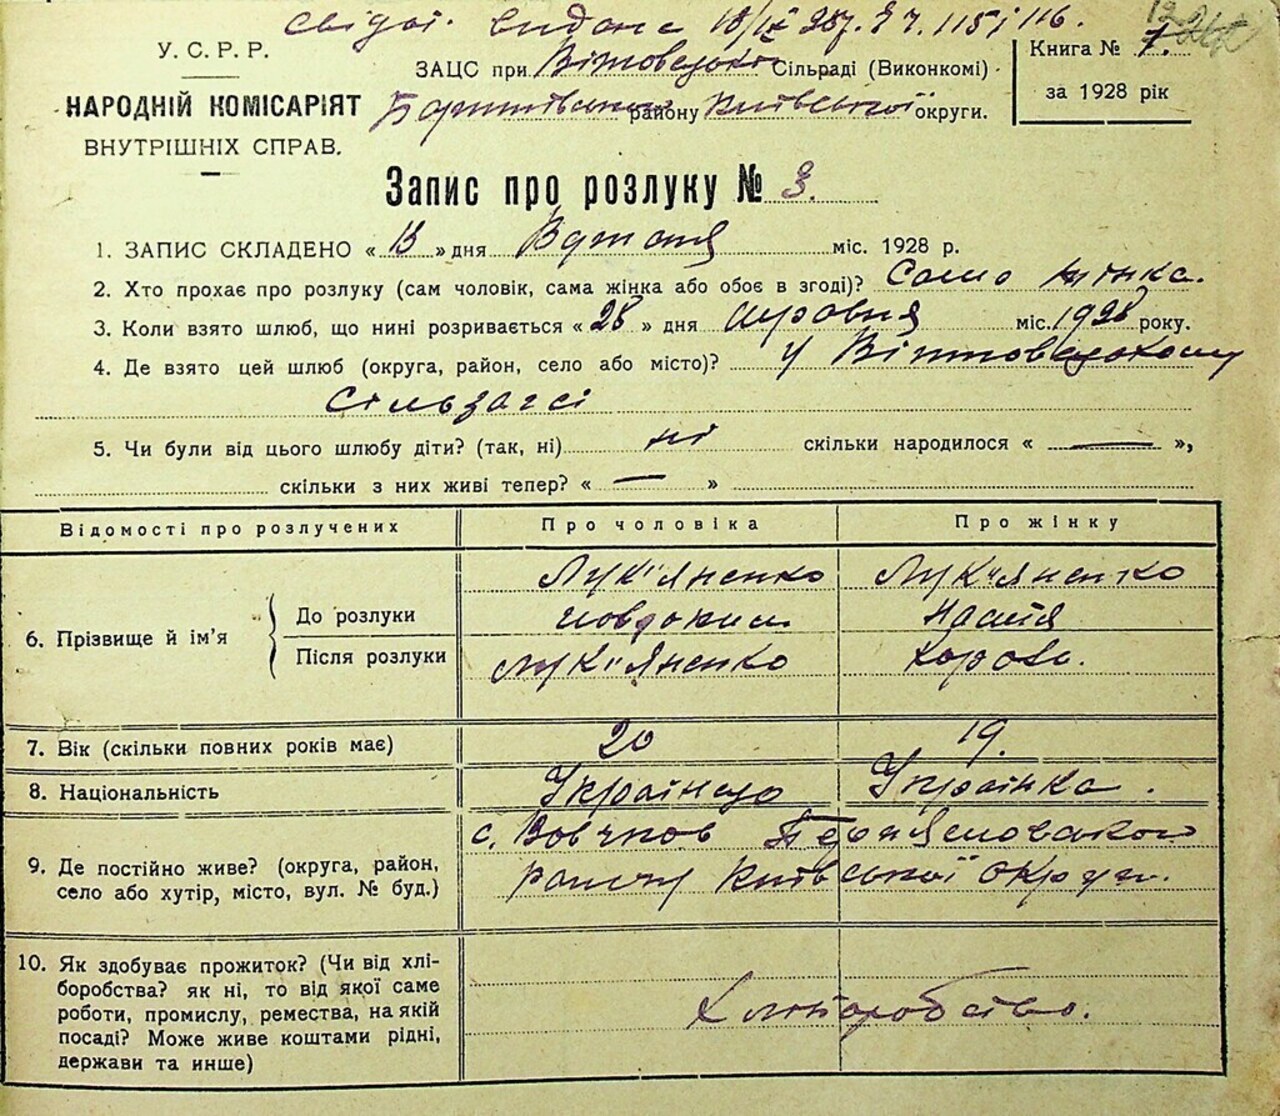 Свідоц. видане 18/IX 28р. з ч. 115 і 116.
У. С. Р. Р.
НАРОДНІЙ КОМІСАРІЯТ
ВНУТРІШНІХ СПРАВ.
ЗАЦС при Сільраді (Виконкомі)
району Київської округи.
Книга № 1.
за 1928 рік
Запис про розлуку № 3.
1. ЗАПИС СКЛАДЕНО « 13 » дня міс. 1928 р.
2. Хто прохає про розлуку (сам чоловік, сама жінка або обоє в згоді)? Сама жінка.
3. Коли взято шлюб, що нині розривається « 28 » дня міс. 1928 року.
4. Де взято цей шлюб (округа, район, село або місто)? у
Сільзагсі
5. Чи були від цього шлюбу діти? (так, ні) ні скільки народилося « — »,
скільки з них живі тепер? « — »
Відомості про розлучених Про чоловіка Про жінку
6. Прізвище й ім’я
До розлуки Лук"яненко Лук"яненко
Явдоким Настя
Після розлуки Лук"яненко
7. Вік (скільки повних років має) 20 19.
8. Національність Українець Українка.
9. Де постійно живе? (округа, район,
село або хутір, місто, вул. № буд.)
с. Вовчков Переяславского
району Київської округи.
10. Як здобуває прожиток? (Чи від хлі-
боробства? як ні, то від якої саме
роботи, промислу, ремества, на якій
посаді? Може живе коштами рідні,
держави та инше)
Хліборобство.